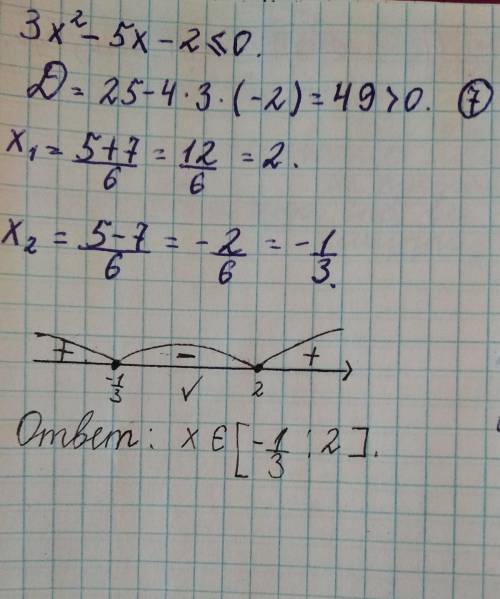 3x² - 5x - 2 ≤ 0.
D = 25 - 4 · 3 · (-2) = 49 > 0. ⑦
x₁ = 5+7/6 = 12/6 = 2.
x₂ = 5-7/6 = -2/6 = -1/3.
+ - +
-1/3 ✓ 2
Ответ: x ∈ [-1/3 ; 2].